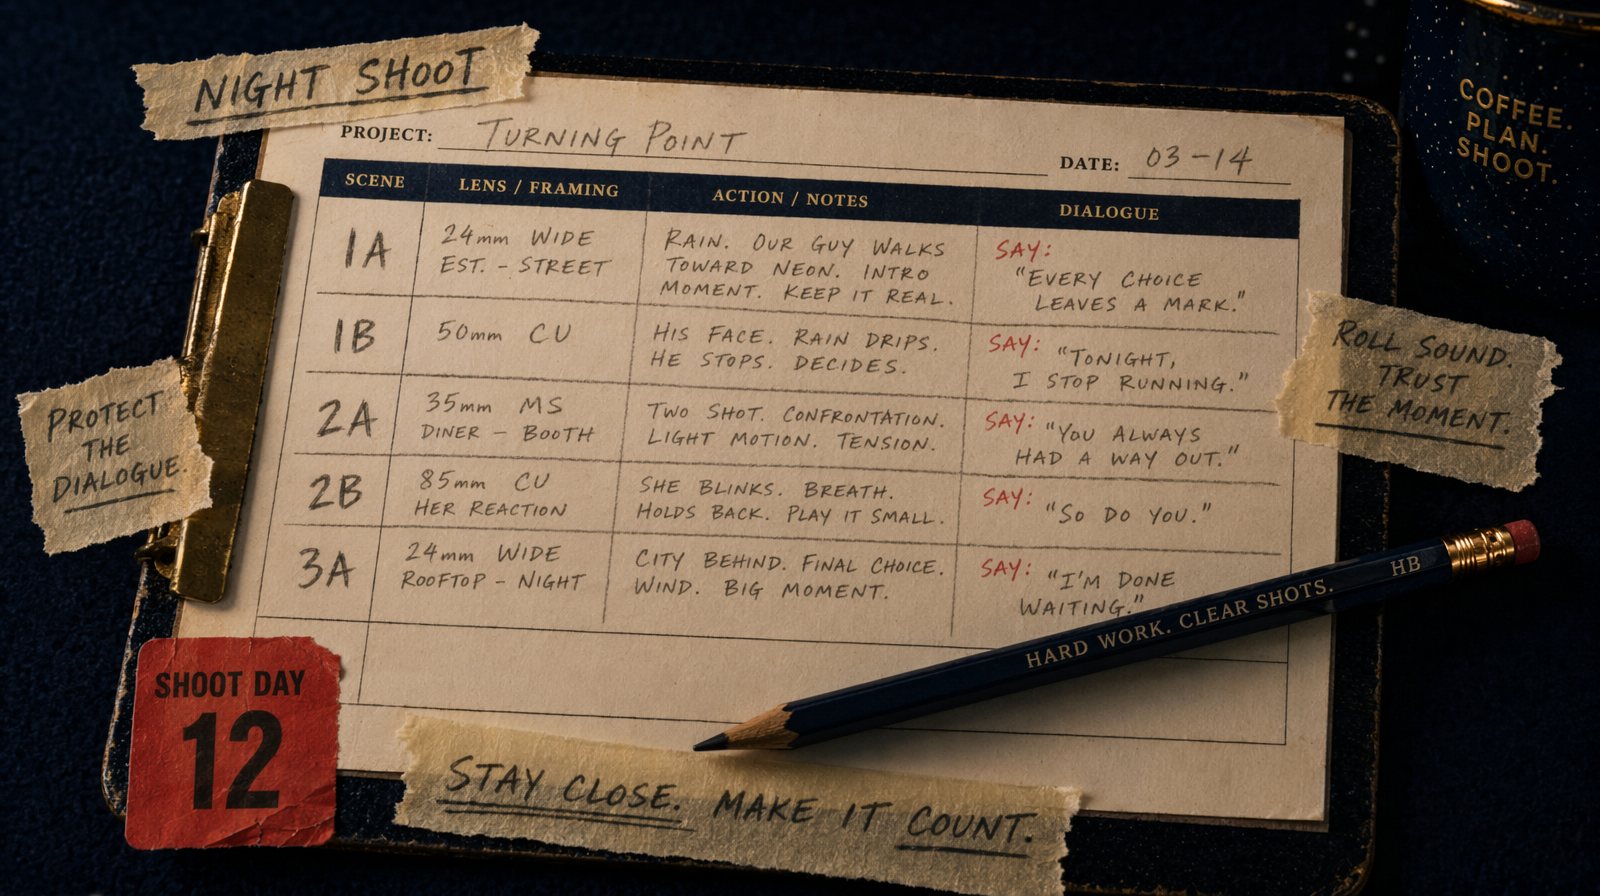 NIGHT SHOOT
PROJECT: TURNING POINT
DATE: 03-14
SCENE
LENS / FRAMING
ACTION / NOTES
DIALOGUE
1A
24mm WIDE
EST. - STREET
RAIN. OUR GUY WALKS
TOWARD NEON. INTRO
MOMENT. KEEP IT REAL.
SAY:
"EVERY CHOICE
LEAVES A MARK."
1B
50mm CU
HIS FACE. RAIN DRIPS.
HE STOPS. DECIDES.
SAY: "TONIGHT,
I STOP RUNNING."
2A
35mm MS
DINER - BOOTH
TWO SHOT. CONFRONTATION.
LIGHT MOTION. TENSION.
SAY: "YOU ALWAYS
HAD A WAY OUT."
2B
85mm CU
HER REACTION
SHE BLINKS. BREATH.
HOLDS BACK. PLAY IT SMALL.
SAY: "SO DO YOU."
3A
24mm WIDE
ROOFTOP - NIGHT
CITY BEHIND. FINAL CHOICE.
WIND. BIG MOMENT.
SAY: "I'M DONE
WAITING."
PROTECT
THE
DIALOGUE.
ROLL SOUND.
TRUST
THE MOMENT.
COFFEE.
PLAN.
SHOOT.
HARD WORK. CLEAR SHOTS. HB
SHOOT DAY
12
STAY CLOSE. MAKE IT COUNT.